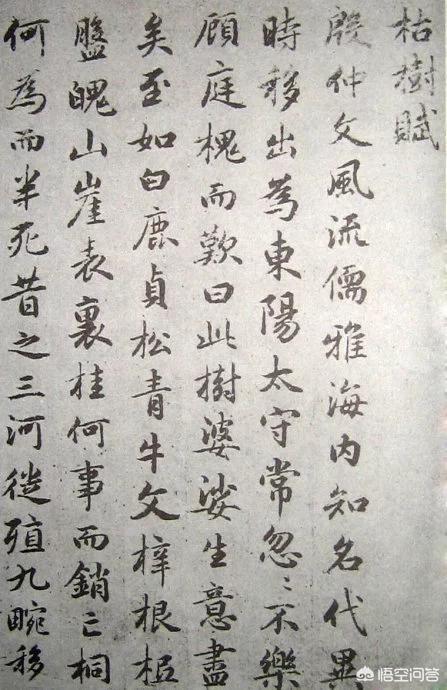 枯樹賦
殷仲文風流儒雅海内知名代異
時移出為東陽太守常忽〻不樂
顧庭槐而歎曰此樹婆娑生意盡
矣至如白鹿貞松青牛文梓根柢
盤魄山崖表裏桂何事而銷亡桐
何為而半死昔之三河徙殖九畹移
悟空问答